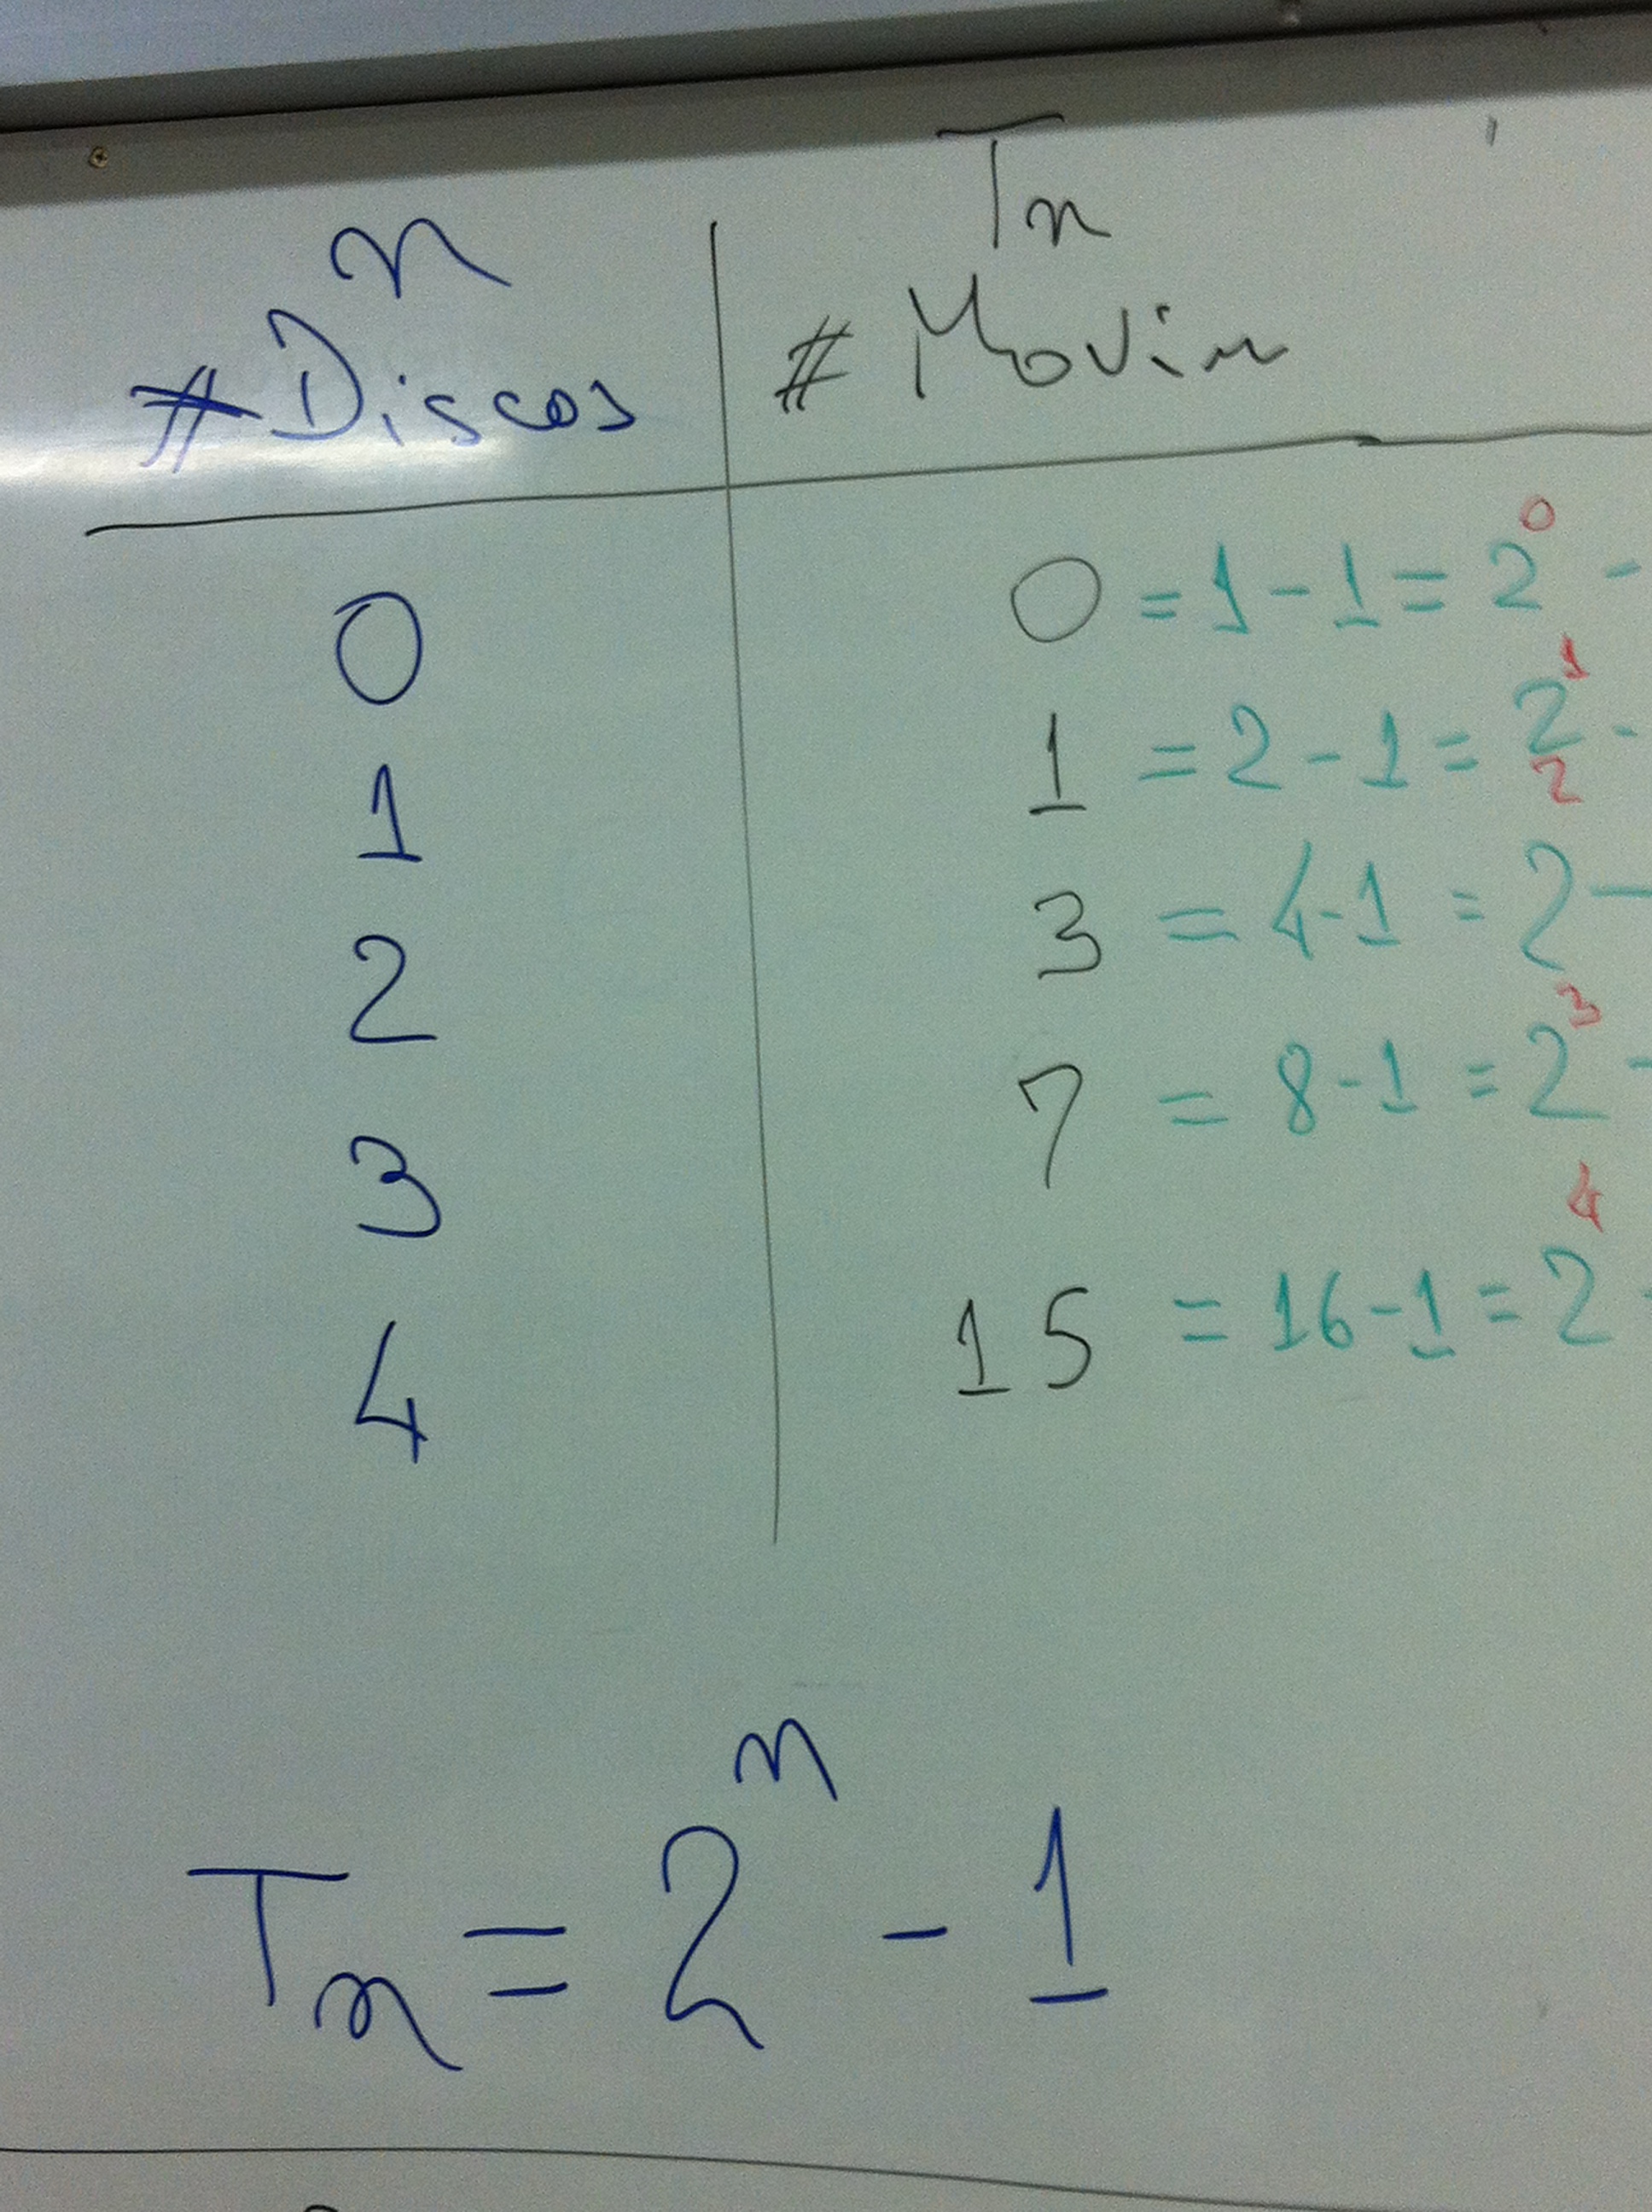 n Tn
# Discos # Movim
0 0 = 1 - 1 = 2⁰ -
1 1 = 2 - 1 = 2¹ -
2 3 = 4 - 1 = 2² -
3 7 = 8 - 1 = 2³ -
4 15 = 16 - 1 = 2⁴ -
Tn = 2ⁿ - 1